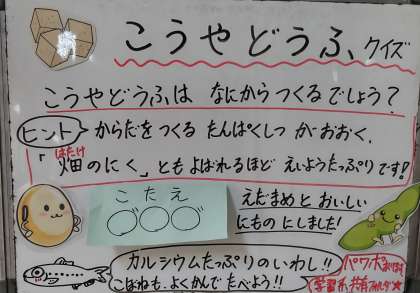 こうやどうふ クイズ
こうやどうふは なにからつくるでしょう?
ヒント
からだをつくる たんぱくしつ がおおく、
はたけ
「畑のにく」ともよばれるほど えいようたっぷりです!
こたえ
○○○
えだまめと おいしい
にものにしました!
カルシウムたっぷりのいわし!!
こぼねも、よくかんで たべよう!!